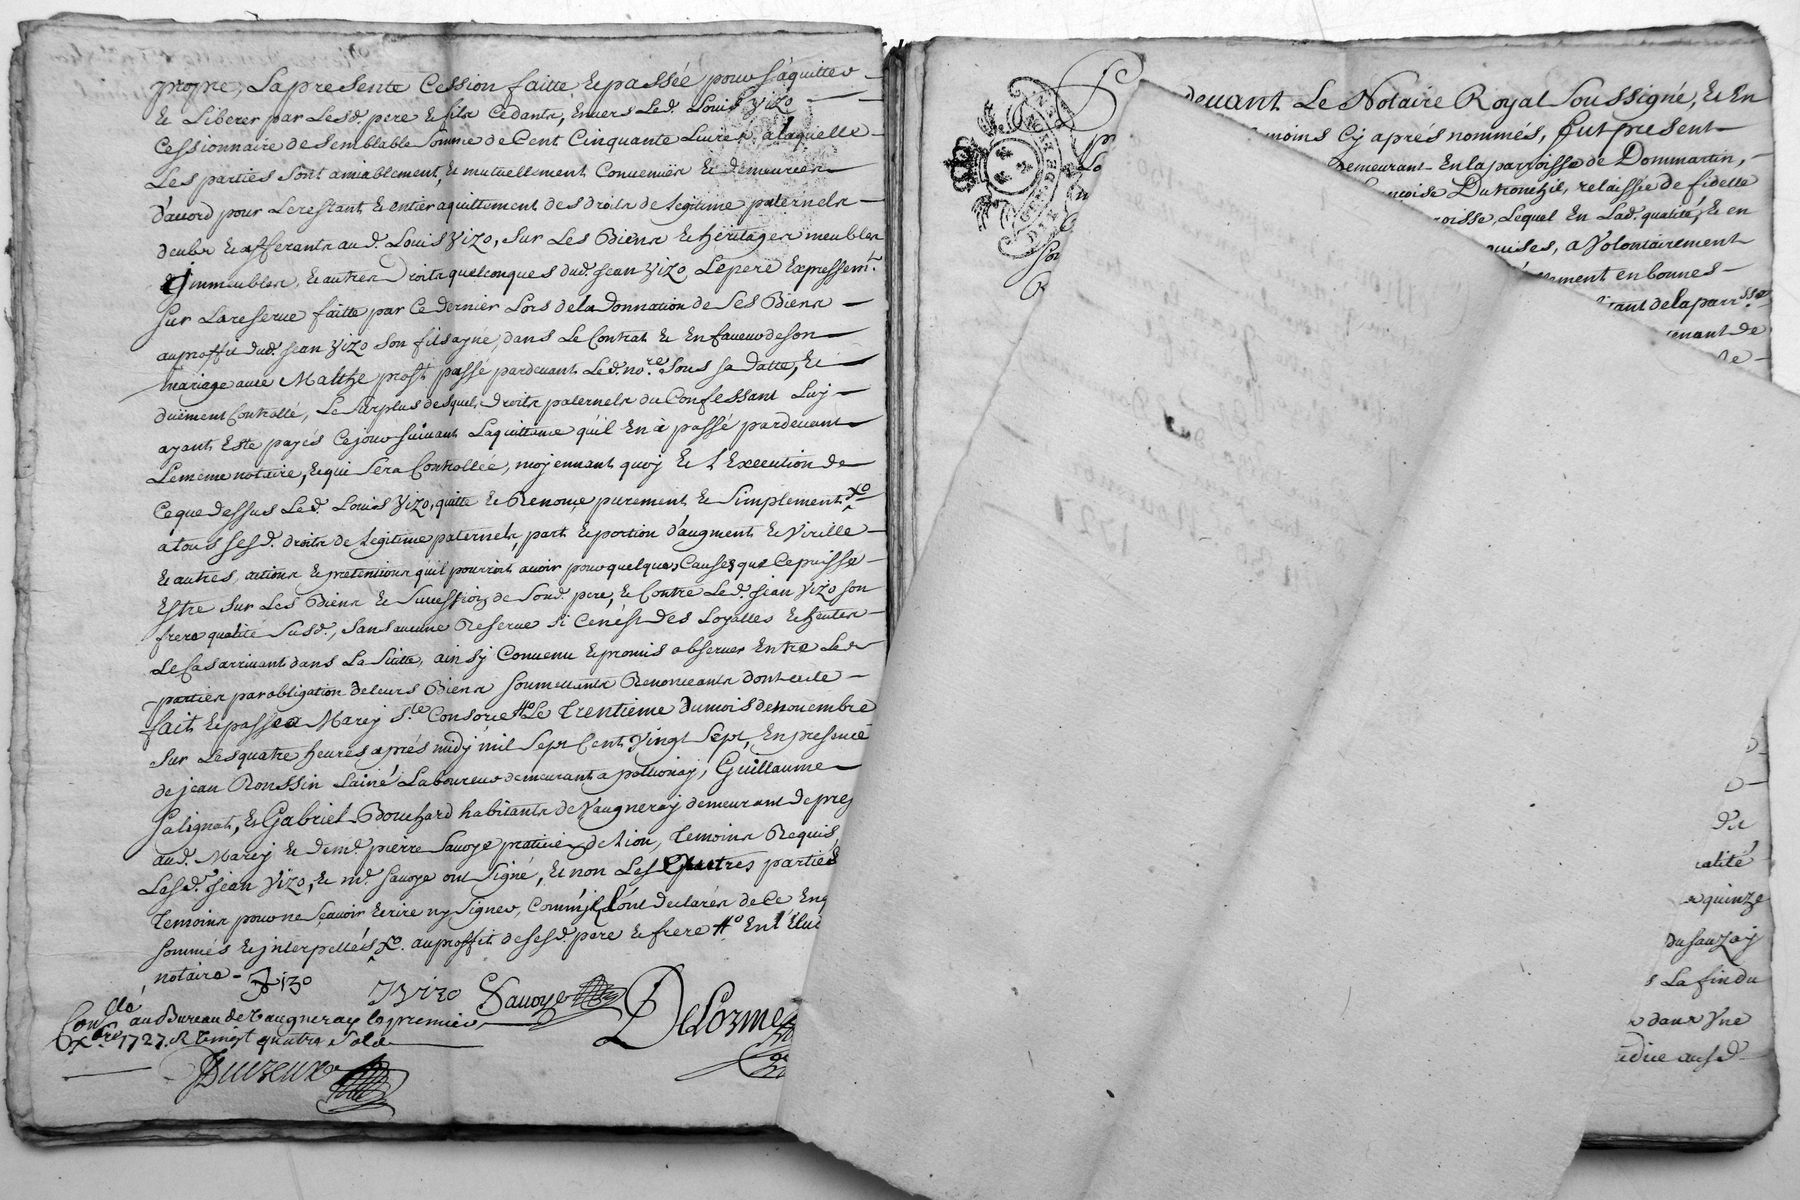 propre, La presente Cession faitte & passée pour s'aquitter
& Liberer par Lesd. pere & fils Cedants, Envers Led. Louis Yizo
Cessionnaire de semblable somme de Cent Cinquante Livres, a laquelle
Les parties sont amiablement, & mutuellement Convenües & demeurées
d'accord pour Le restant & entier aquittement des droits de Legitime paternels
deubs & afferants aud. Louis Yizo, sur Les Biens & heritages meubles
immeubles, & autres Droits quelconques dud. Jean Yizo, Le pere Expressemt.
sur La reserve faitte par Ce dernier Lors de la Donnation de ses Biens
au proffit dud. Jean Yizo son fils ayné, dans Le Contrat & En faveur de son
mariage avec Matthe prost passé pardevant Led. nore. sous sa datte, &
duëment Controllé, Le surplus desquels droits paternels du Confessant Luy
ayant Esté payés Cejour suivant La quittance qu'il En a passé pardevant
Le meme notaire, & qui sera Controllée, moyennant quoy & L'Execution de
Ce que dessus Led. Louis Yizo, quitte & Renonce purement & simplement Xo
a tous sesd. droits de Legitime paternels, part & portion d'augment & Virille
& autres, actions & pretentions qu'il pourroit avoir pour quelques Causes que Ce puisse
Estre sur Les Biens & succession de sond. pere, & Contre Led. Jean Yizo son
frere qualité susd., sans aucune Reserve si Ce n'est des Loyalles Echeutes
Le Cas arrivant dans La suitte, ainsy Convenu & promis observer Entre Les
parties par obligation de leurs Biens soumettants Renonceants dont acte
fait & passé a Marcy Ste Consorce #o Le Trentieme du mois de novembre
sur Les quatre heures aprés midy mil sept Cent Vingt sept, En presence
de jean Ronssin L'ainé Laboureur demeurant a pollionay, Guillaume
Palignat, & Gabriel Bouchard habitants de Vaugneray demeurant de pres
aud. Marcy & de md. pierre Savoye praticien de Lion, Temoins Requis,
Lesd. Jean Yizo, & md. Savoye ont signé, & non Les autres parties
Temoins pour ne sçavoir Ecrire ny signer, Comm'ils L'ont declarés de Ce En
sommés & jnterpellés Xo. au proffit de sesd. pere & frere #o En L'Etu
notaire
J Yizo Savoye Delorme
Conllé au Bureau de Vaugneray le premier
Xbre 1727. R vingt quatre sols
devant Le Notaire Royal Soussigné, & En
moins Cy aprés nommés, fut present
Demeurant En la parroisse de Dommartin,
relaissie de fidelle
oisse, Lequel En Lad. qualité, & en
uises, a Volontairement
ement en bonnes
itant de la parrsse
enant de
de
1727
D
D
dit
alité
quinze
du sauzay
s La fin du
dans Yne
edice ausd